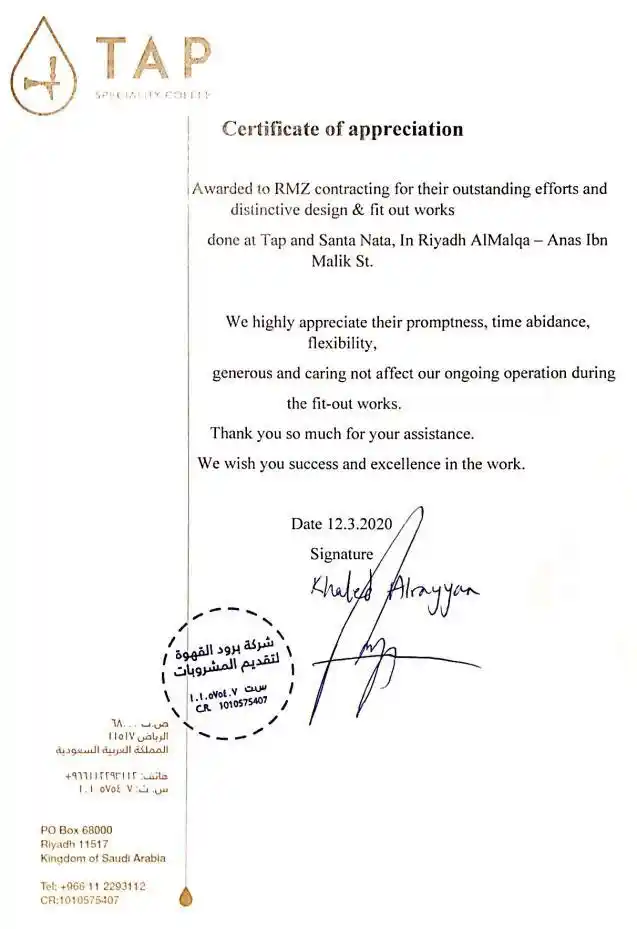 TAP
SPECIALITY COFFEE
Certificate of appreciation
Awarded to RMZ contracting for their outstanding efforts and
distinctive design & fit out works
done at Tap and Santa Nata, In Riyadh AlMalqa – Anas Ibn
Malik St.
We highly appreciate their promptness, time abidance,
flexibility,
generous and caring not affect our ongoing operation during
the fit-out works.
Thank you so much for your assistance.
We wish you success and excellence in the work.
Date 12.3.2020
Signature
Khaled Alrayyan
شركة برود القهوة
لتقديم المشروبات
س.ت ١٠١٠٥٧٥٤٠٧
C.R. 1010575407
ص.ب ٦٨٠٠٠
الرياض ١١٥١٧
المملكة العربية السعودية
هاتف: ٩٦٦١١٢٢٩٣١١٢+
س.ت: ١٠١٠٥٧٥٤٠٧
PO Box 68000
Riyadh 11517
Kingdom of Saudi Arabia
Tel: +966 11 2293112
CR:1010575407